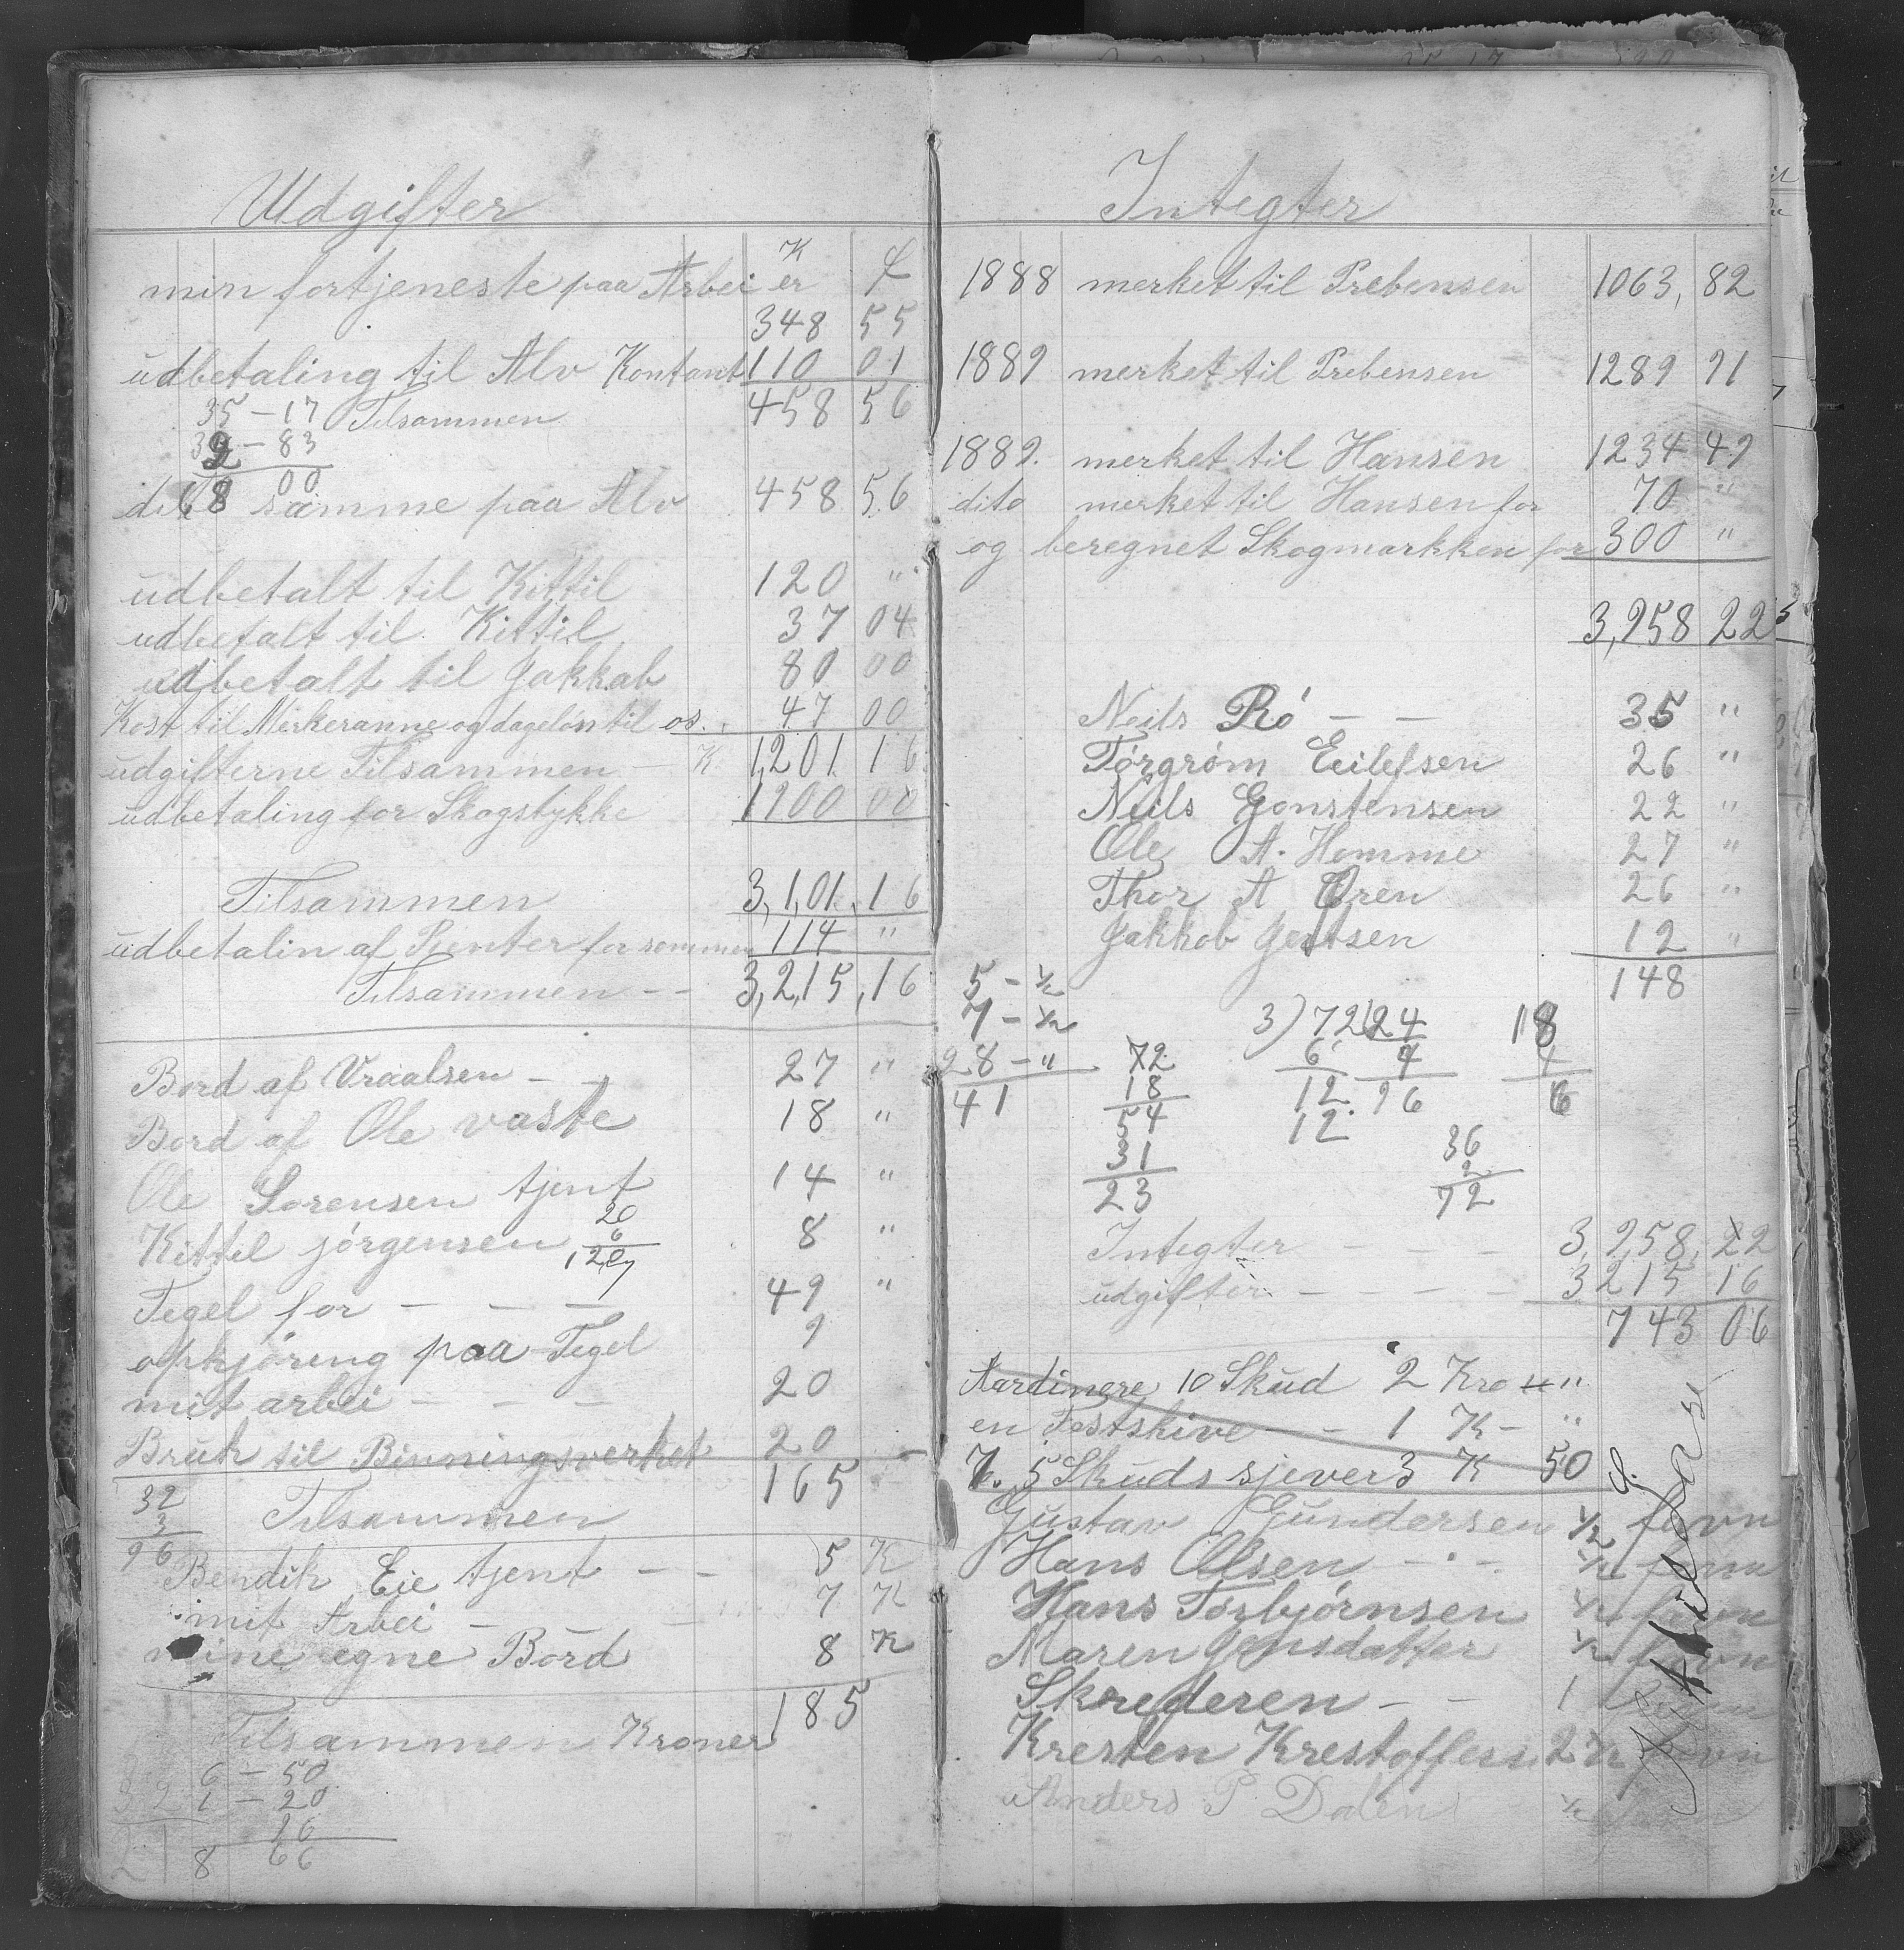 Udgifter
K ϕ
min fortjeneste paa Arbei er
348 55
udbetaling til Alv Kontant 110 01
35 - 17 Tilsammen 458 56
32 - 83
68 00
dito samme paa Alv 458 56
udbetalt til Kittil 120 "
udbetalt til Kittil 37 04
udbetalt til Jakkab 80 00
Kost til Merkeranne og dageløn til os. 47 00
udgifterne Tilsammen - K. 1,201. 16
udbetaling for Skogstykke 1900 00
Tilsammen 3,1,01. 16
udbetalin af Renter for sommen 114 "
Tilsammen - - 3,2,15, 16
Bord af Vraalsen - - 27 "
Bord af Ole vaste 18 "
Ole Sorensen tjent 14 "
20
6
120
Kittil jørgensen 8 "
Tegel for - - - 49 "
opkjøring paa Tegel 9
mit arbei - - - 20
Bruk til Binningsverket 20 -
165
32
3
96
Tilsammen
Bendik Eie tjent - - 5 K
mit Arbei - - - 7 K
mine egne Bord 8 K
Tilsammen Kroner 185
6 - 50
1 - 20
16
8 66
Integter
1888 merket til Prebensen 1063, 82
1889 merket til Prebensen 1289 91
1889. merket til Hansen 1234 49
dito merket til Hansen for 70 "
og beregnet Skogmarkken for 300 "
3,958 22
Neils Rø - - 35 "
Tørgrøm Eilefsen 26 "
Neils Gonstensen 22 "
Ole A. Homme 27 "
Thor A Øren 26 "
Jakkob Jertsen 12 "
148
5 - ½
7 - ½
28 - "
41
72
18
54
31
23
3) 72 (24
6 4
12 96
12
18
4
6
36
2
72
Integter - - - 3,958, 22
udgifter - - - - 3215 16
743 06
Aardinere 10 Skud 2 Kro "
en Festskive - - 1 K - "
7. 5 Skudssjever 3 K 50
Gustav Gundersen ½ favn
Hans Olsen - - - ½ favn
Hans Torbjørnsen ½ favn
Maren Jensdatter ½ favn
Skrederen - - 1 favn
Kresten Krestoffess 2 ½ favn
Anders P. Dalen ½ favn